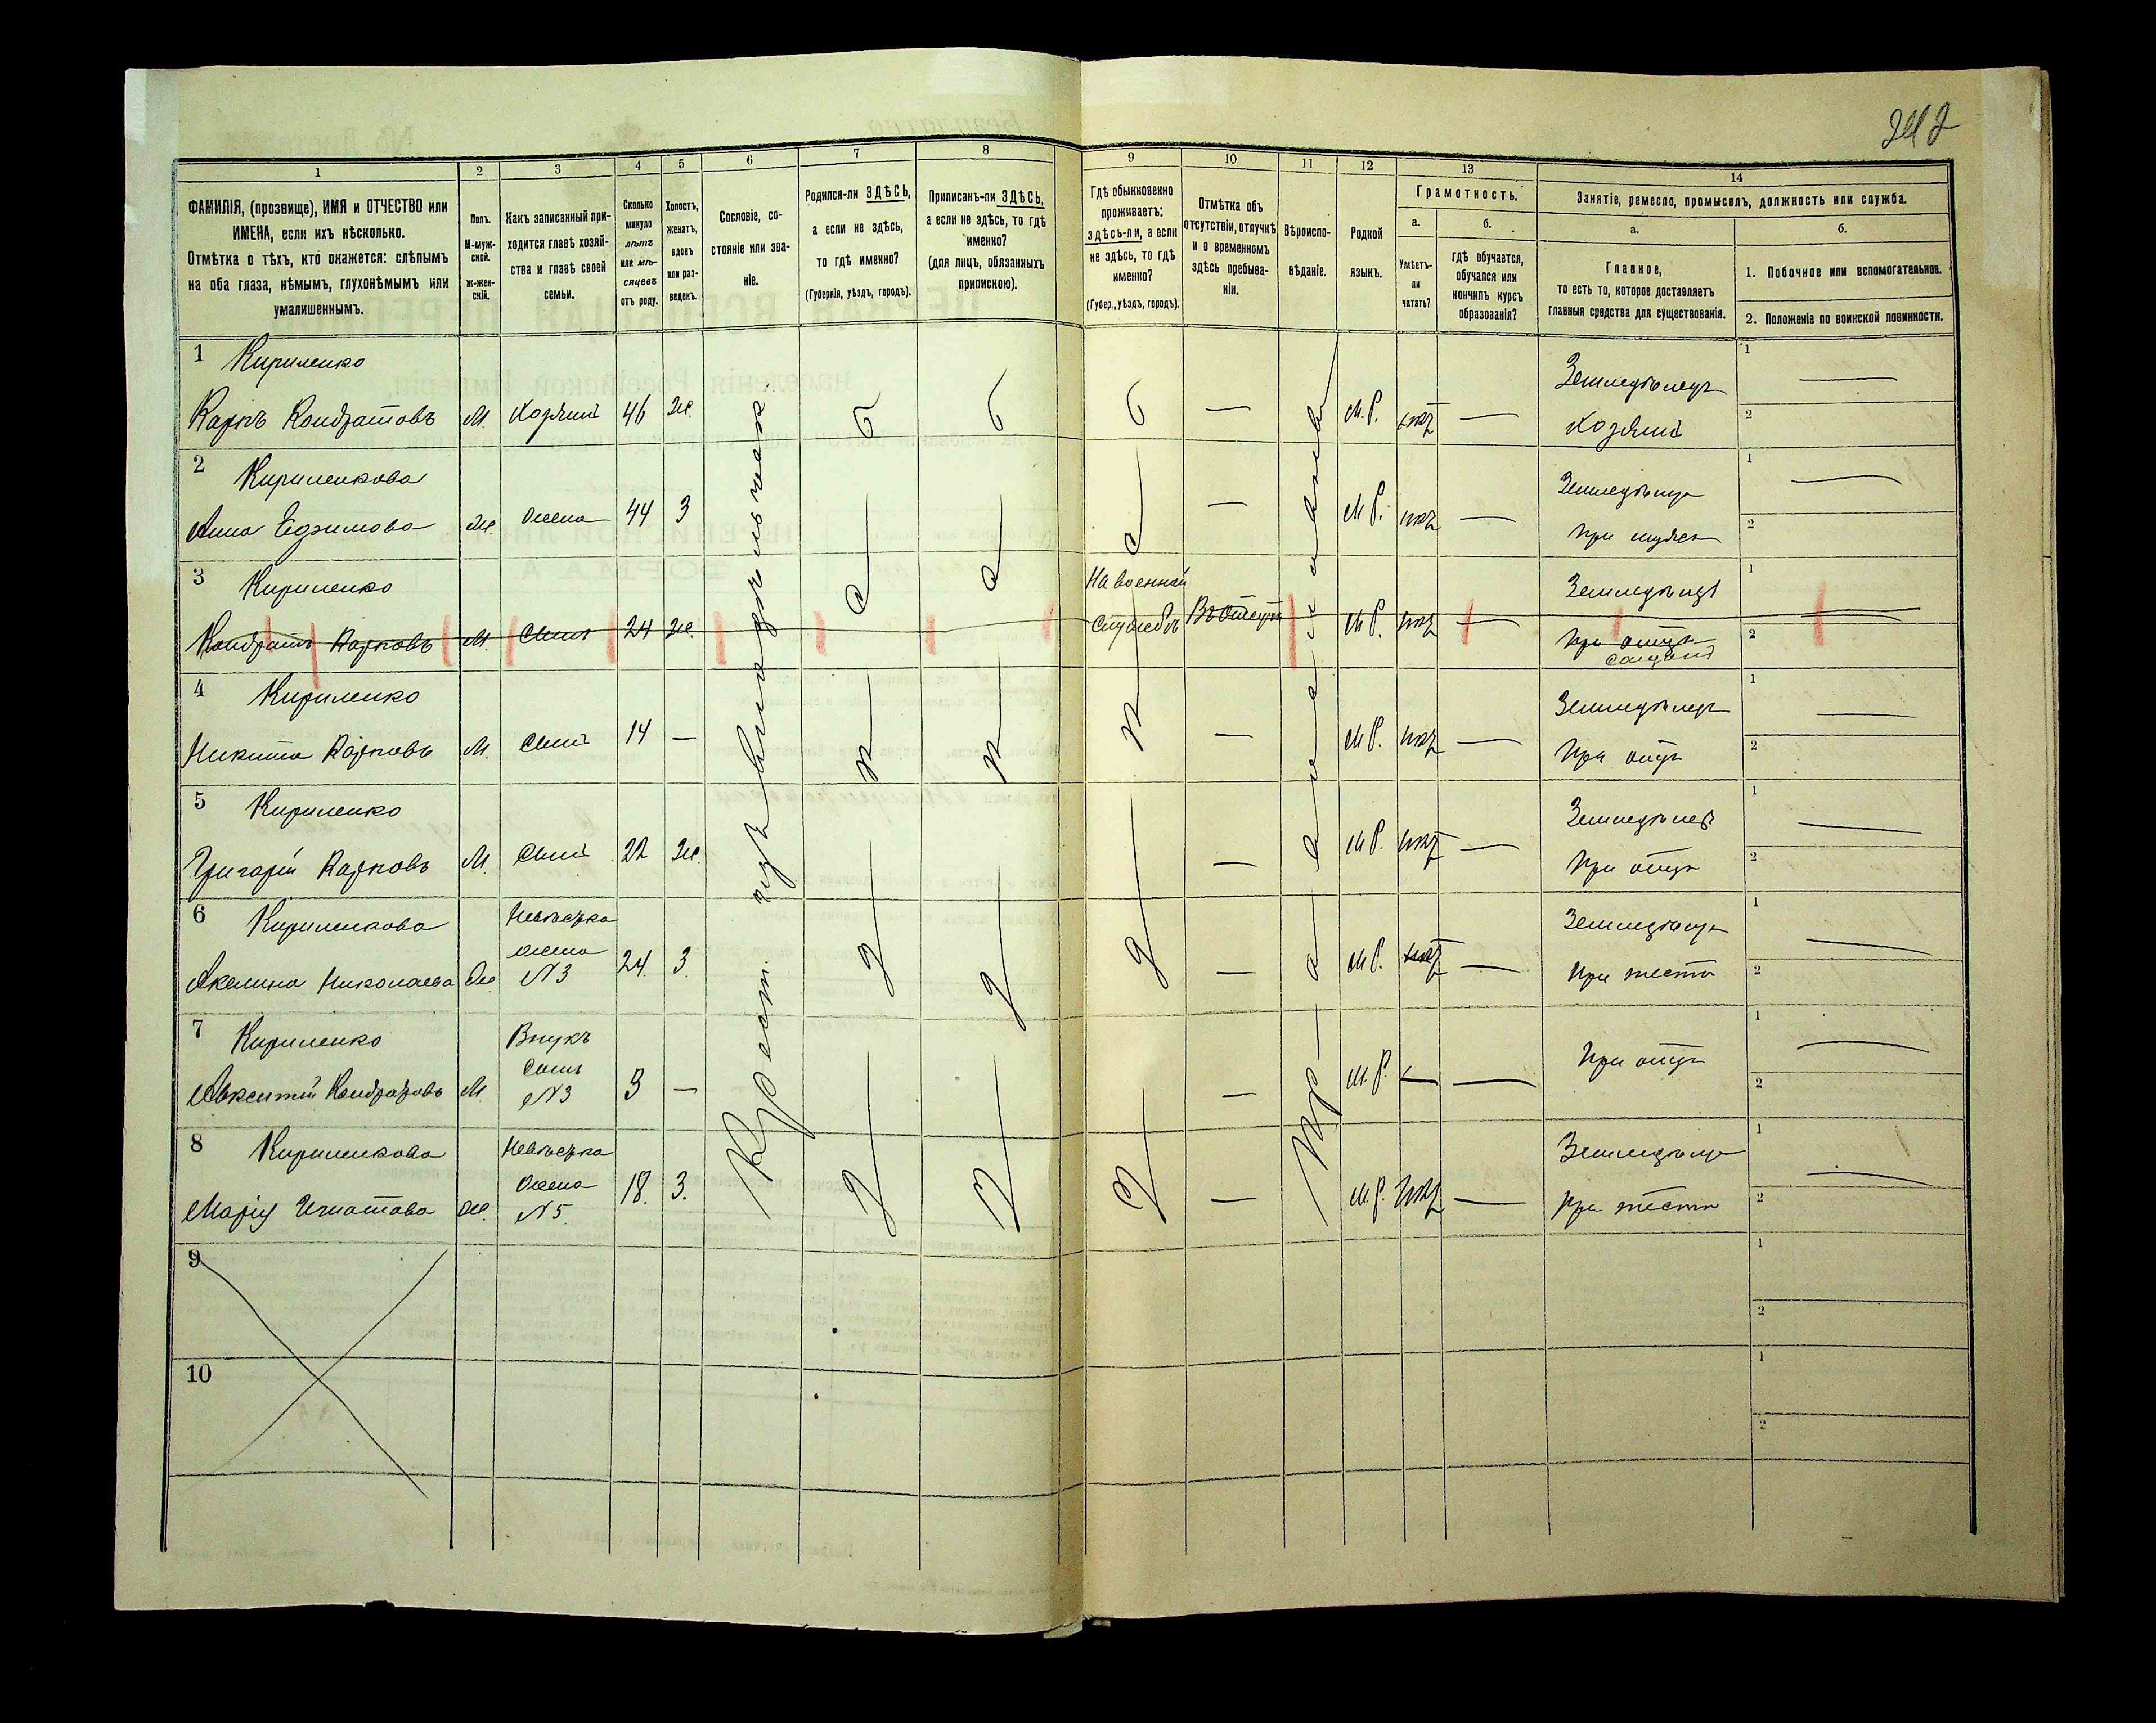 242
1
2
3
4
5
6
7
8
9
10
11
12
13
14
ФАМИЛІЯ, (прозвище), ИМЯ и ОТЧЕСТВО или
ИМЕНА, если ихъ нѣсколько.
Отмѣтка о тѣхъ, кто окажется: слѣпымъ
на оба глаза, нѣмымъ, глухонѣмымъ или
умалишеннымъ.
Полъ.
М-муж-
ской.
Ж-жен-
скій.
Какъ записанный при-
ходится главѣ хозяй-
ства и главѣ своей
семьи.
Сколько
минуло
лѣтъ
или мѣ-
сяцевъ
отъ роду.
Холостъ,
женатъ,
вдовъ
или раз-
веденъ.
Сословіе, со-
стояніе или зва-
ніе.
Родился-ли ЗДѢСЬ,
а если не здѣсь,
то гдѣ именно?
(Губернія, уѣздъ, городъ).
Приписанъ-ли ЗДѢСЬ,
а если не здѣсь, то гдѣ
именно?
(для лицъ, обязанныхъ
припискою).
Гдѣ обыкновенно
проживаетъ:
здѣсь-ли, а если
не здѣсь, то гдѣ
именно?
(Губер., уѣздъ, городъ).
Отмѣтка объ
отсутствіи, отлучкѣ
и о временномъ
здѣсь пребыва-
ніи.
Вѣроиспо-
вѣданіе.
Родной
языкъ.
Грамотность.
а.
Умѣетъ-
ли
читать?
б.
гдѣ обучается,
обучался или
кончилъ курсъ
образованія?
Занятіе, ремесло, промыселъ, должность или служба.
а.
Главное,
то есть то, которое доставляетъ
главныя средства для существованія.
б.
1. Побочное или вспомогательное.
2. Положеніе по воинской повинности.
1 Кириленко
Карпъ Кондратовъ М. Хозяинъ 46 Ж. — М.Р. нѣтъ — Земледѣлецъ
Хозяинъ 1 — 2
2 Кириленкова
Анна Ефимова Ж. Жена 44 З — М.Р. нѣтъ — 1 — 2
3 Кириленко
Кондратъ Карповъ М. Сынъ 24 Ж. На военной
службѣ М.Р. нѣтъ Земледѣлецъ
При отцѣ 1 2
4 Кириленко
Никита Карповъ М. Сынъ 14 — — М.Р. нѣтъ — Земледѣлецъ
При отцѣ 1 — 2
5 Кириленко
Григорій Карповъ М. Сынъ 22 Ж. — М.Р. нѣтъ — Земледѣлецъ
При отцѣ 1 — 2
6 Кириленкова
Акелина Николаева Ж. Невѣстка
жена
№3 24. З. — М.Р. нѣтъ —
При тестѣ 1 — 2
7 Кириленко
Авксентій Кондратовъ М. Внукъ
Сынъ
№3 3 — — М.Р. — — При отцѣ 1 — 2
8 Кириленкова
Марія Игнатова Ж. Невѣстка
Жена
№5. 18. З. — М.Р. нѣтъ —
При тестѣ 1 — 2
Крест.
З д ѣ с ь
З д ѣ с ь
З д ѣ с ь
9 1 2
10 1 2